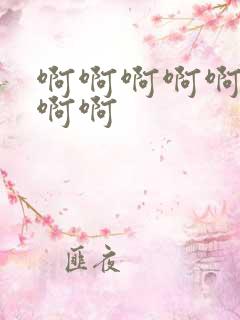 啊啊啊啊啊
啊啊
匪夜